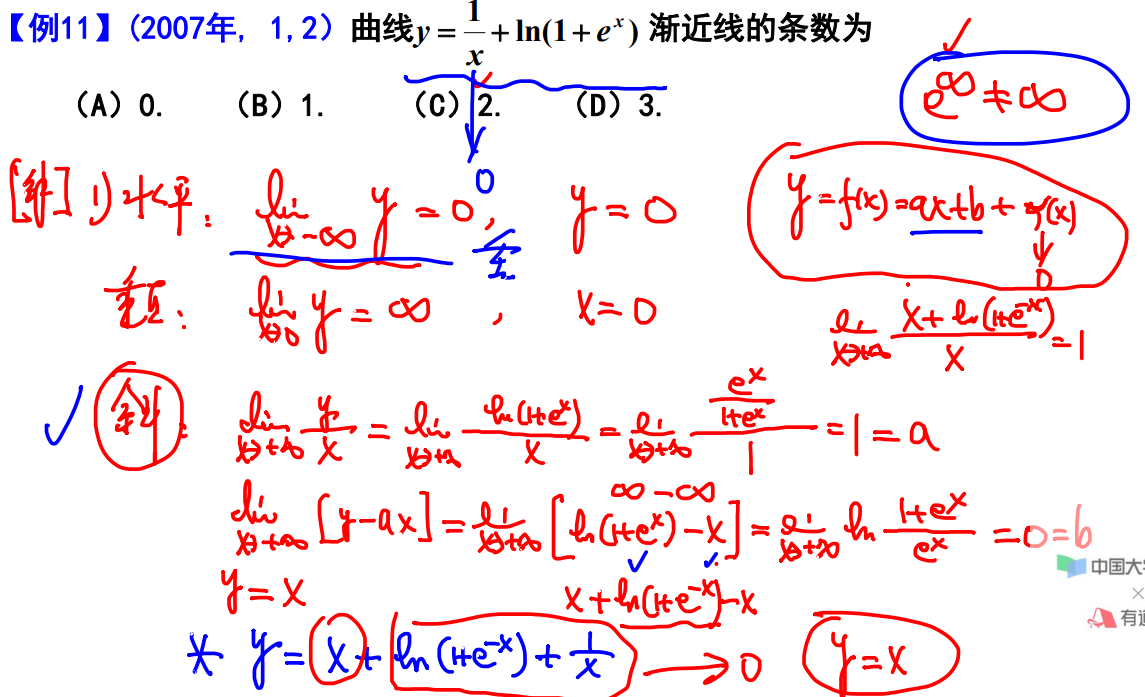 【例11】(2007年, 1,2) 曲线y = 1/x + ln(1 + e^x) 渐近线的条数为
(A) 0. (B) 1. (C) 2. (D) 3.
e^∞ ≠ ∞
[解] 1) 水平: lim x→-∞ y = 0, y = 0
0
y = f(x) = ax+b + α(x)
↓
0
垂直: lim x→0 y = ∞, x = 0
lim x→+∞ (x + ln(1+e^-x))/x = 1
斜: lim x→+∞ y/x = lim x→+∞ ln(1+e^x)/x = lim x→+∞ (e^x/(1+e^x))/1 = 1 = a
∞ - ∞
lim x→+∞ [y - ax] = lim x→+∞ [ln(1+e^x) - x] = lim x→+∞ ln (1+e^x)/e^x = 0 = b
y = x x + ln(1+e^-x) - x
* y = x + ln(1+e^-x) + 1/x → 0 y = x
中国大
有道